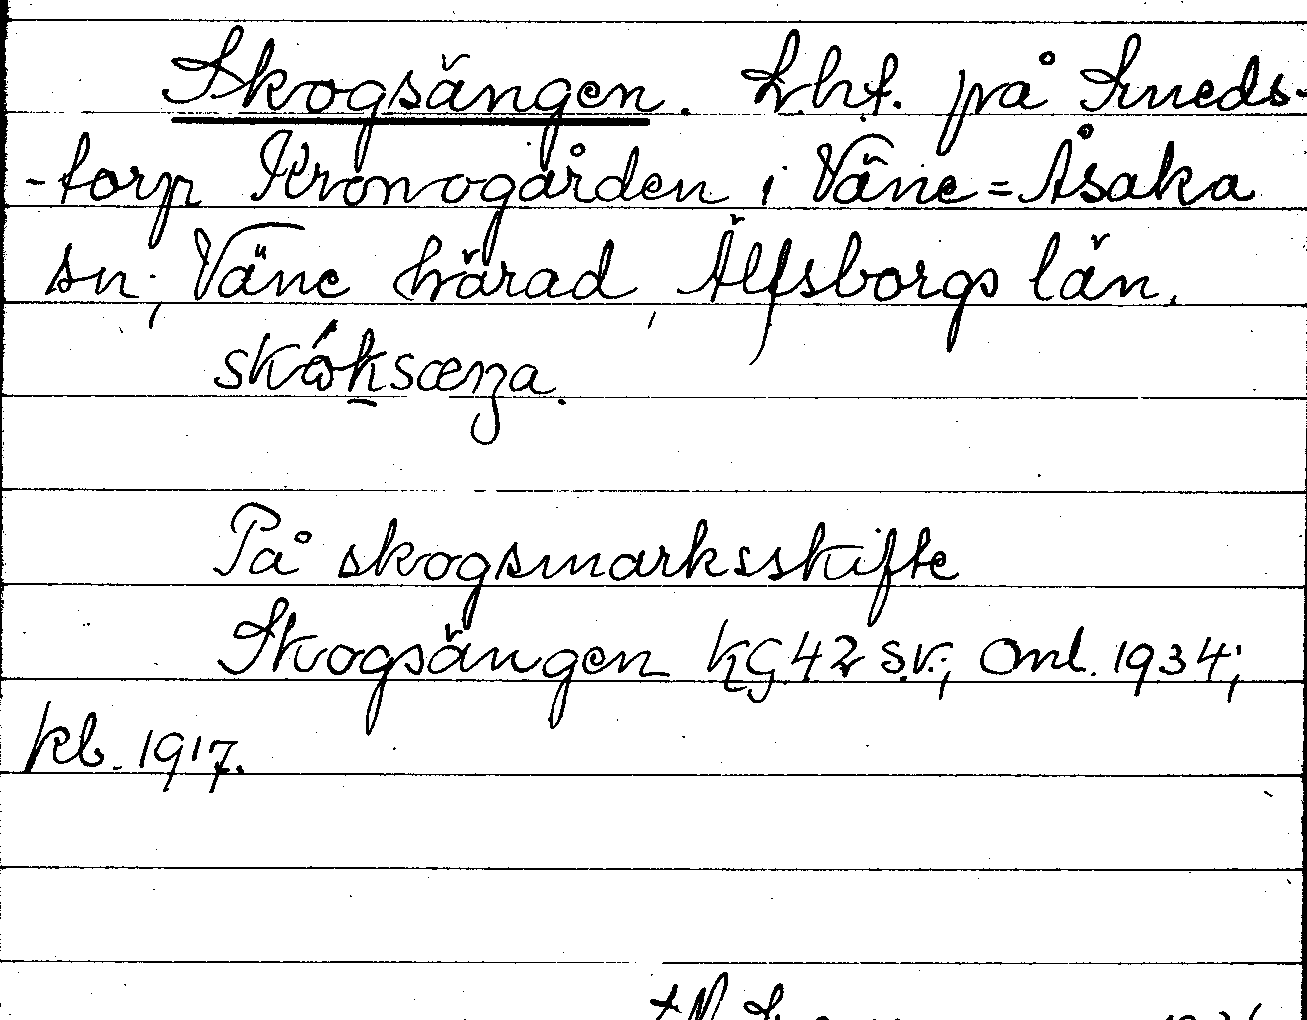 Skogsängen. Lhf. på Smeds-
-torp Kronogården i Väne=Åsaka
sn; Väne härad, Älfsborgs län.
På skogsmarksskifte
Skogsängen KG 42 s.v.; Oml. 1934;
kb. 1917.